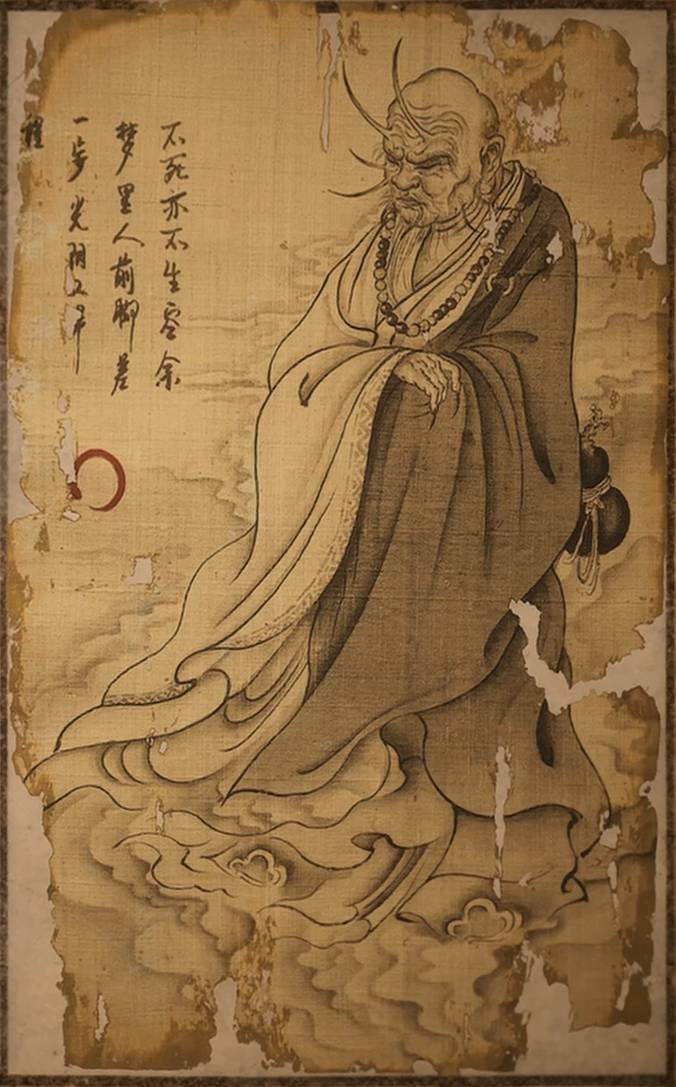 不死亦不生空余
梦里人前脚差
一步光阴